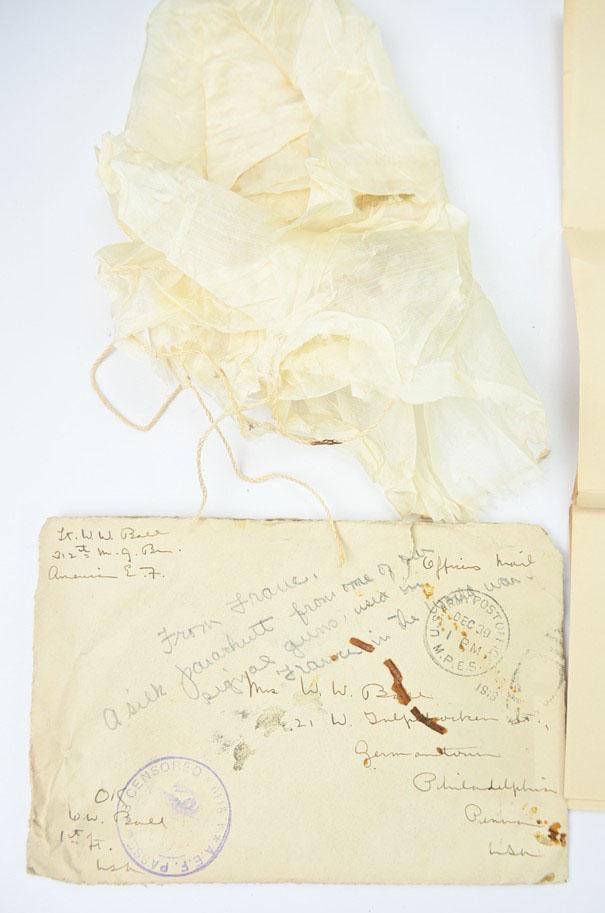 Lt. W. W. Ball
312th M. G. Bn.
American E. F.
Officers Mail
From France.
A silk parachutt from one of our
signal guns, used in
France in the world war.
U.S. ARMY POST OFFICE
DEC 30
1 PM
M.P.E.S.
Mrs W. W. Ball
21 W. Tulpehocken St.,
Germantown
Philadelphia
Penna
USA
CENSORED
A.E.F. PASSED
OK
W.W. Ball
1st Lt.
USA